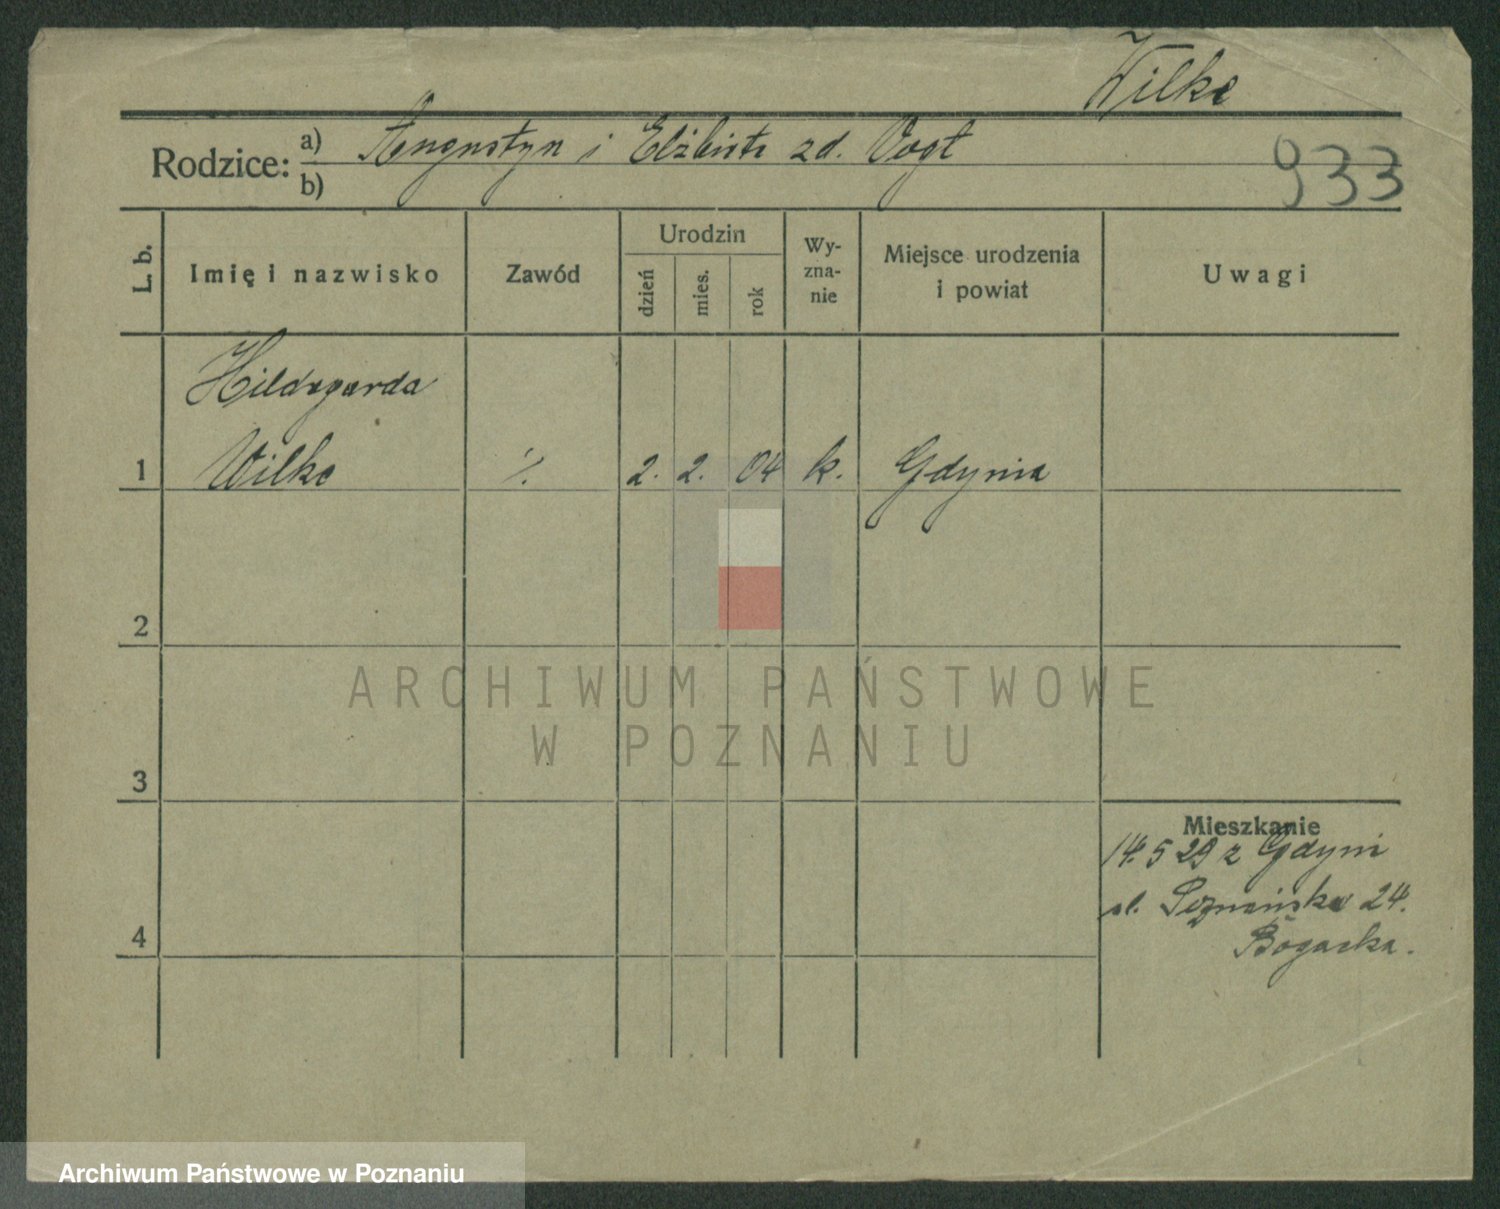 Wilke
Rodzice: a) Augustyn i Elżbieta zd. Vogt
b)
933
L. b.
Imię i nazwisko
Zawód
Urodzin
dzień
mies.
rok
Wy-
zna-
nie
Miejsce urodzenia
i powiat
Uwagi
Hildegarda
1 Wilke ٪. 2. 2. 04 k. Gdynia
2
ARCHIWUM PAŃSTWOWE
W POZNANIU
3
Mieszkanie
14.5 29 z Gdyni
ul. Poznańska 24.
4
Bogacka.
Archiwum Państwowe w Poznaniu